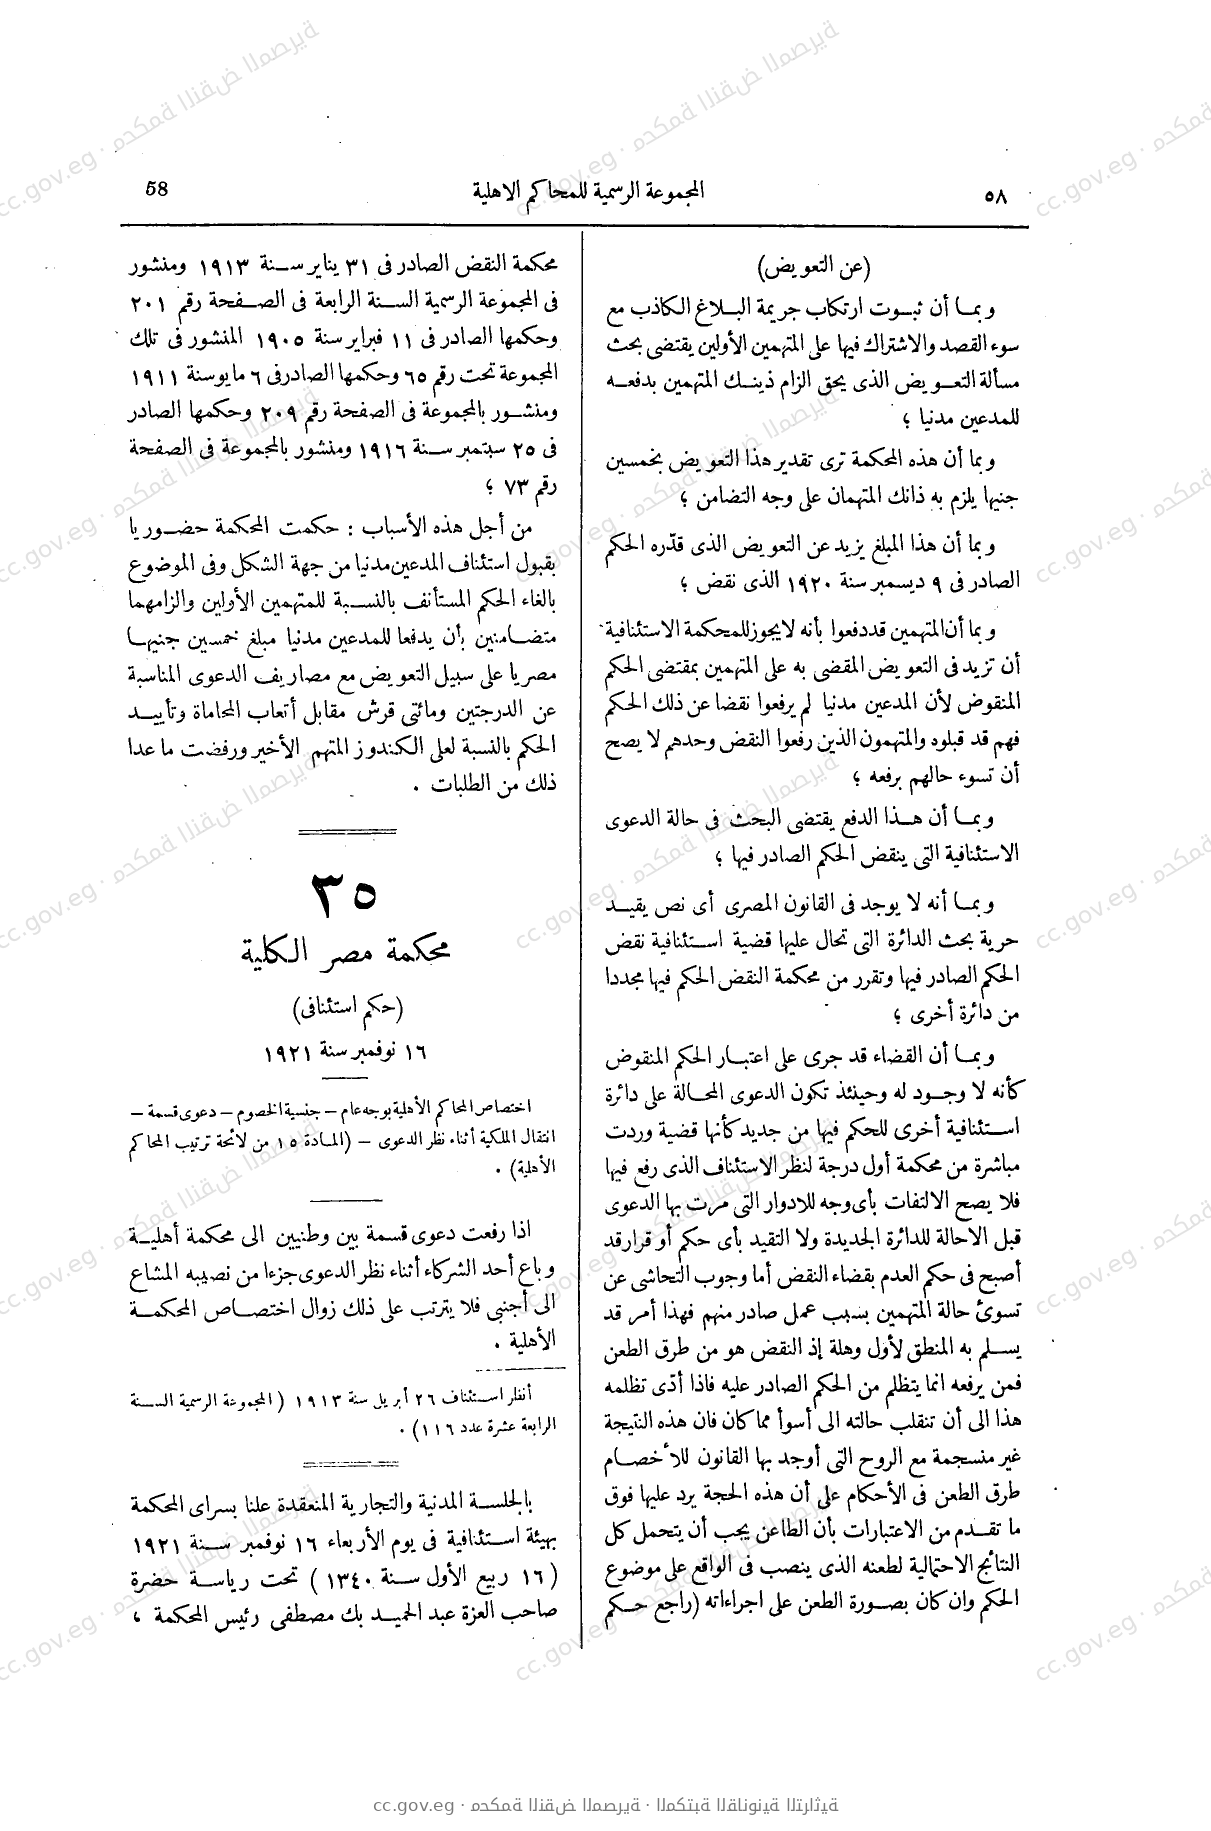 58
المجموعة الرسمية للمحاكم الاهلية
٥٨
(عن التعويض)
وبما أن ثبوت ارتكاب جريمة البلاغ الكاذب مع
سوء القصد والاشتراك فيها على المتهمين الأولين يقتضى بحث
مسألة التعويض الذى يحق الزام ذينك المتهمين بدفعه
للمدعين مدنيا ؛
وبما أن هذه المحكمة ترى تقدير هذا التعويض بخمسين
جنيها يلزم به ذانك المتهمان على وجه التضامن ؛
وبما أن هذا المبلغ يزيد عن التعويض الذى قدّره الحكم
الصادر فى ٩ ديسمبر سنة ١٩٢٠ الذى نقض ؛
وبما أن المتهمين قد دفعوا بأنه لا يجوز للمحكمة الاستئنافية
أن تزيد فى التعويض المقضى به على المتهمين بمقتضى الحكم
المنقوض لأن المدعين مدنيا لم يرفعوا نقضا عن ذلك الحكم
فهم قد قبلوه والمتهمون الذين رفعوا النقض وحدهم لا يصح
أن تسوء حالهم برفعه ؛
وبما أن هذا الدفع يقتضى البحث فى حالة الدعوى
الاستئنافية التى ينقض الحكم الصادر فيها ؛
وبما أنه لا يوجد فى القانون المصرى أى نص يقيد
حرية بحث الدائرة التى تحال عليها قضية استئنافية نقض
الحكم الصادر فيها وتقرر من محكمة النقض الحكم فيها مجددا
من دائرة أخرى ؛
وبما أن القضاء قد جرى على اعتبار الحكم المنقوض
كأنه لا وجود له وحينئذ تكون الدعوى المحالة على دائرة
استئنافية أخرى للحكم فيها من جديد كأنها قضية وردت
مباشرة من محكمة أول درجة لنظر الاستئناف الذى رفع فيها
فلا يصح الالتفات بأى وجه للادوار التى مرت بها الدعوى
قبل الاحالة للدائرة الجديدة ولا التقيد بأى حكم أو قرار قد
أصبح فى حكم العدم بقضاء النقض أما وجوب التحاشى عن
تسوئ حالة المتهمين بسبب عمل صادر منهم فهذا أمر قد
يسلم به المنطق لأول وهلة إذ النقض هو من طرق الطعن
فمن يرفعه انما يتظلم من الحكم الصادر عليه فاذا أدّى تظلمه
هذا الى أن تنقلب حالته الى أسوأ مما كان فان هذه النتيجة
غير منسجمة مع الروح التى أوجد بها القانون للأخصام
طرق الطعن فى الأحكام على أن هذه الحجة يرد عليها فوق
ما تقدم من الاعتبارات بأن الطاعن يجب أن يتحمل كل
النتائج الاحتمالية لطعنه الذى ينصب فى الواقع على موضوع
الحكم وان كان بصورة الطعن على اجراءاته (راجع حكم
محكمة النقض الصادر فى ٣١ يناير سنة ١٩١٣ ومنشور
فى المجموعة الرسمية السنة الرابعة فى الصفحة رقم ٢٠١
وحكمها الصادر فى ١١ فبراير سنة ١٩٠٥ المنشور فى تلك
المجموعة تحت رقم ٦٥ وحكمها الصادر فى ٦ مايو سنة ١٩١١
ومنشور بالمجموعة فى الصفحة رقم ٢٠٩ وحكمها الصادر
فى ٢٥ سبتمبر سنة ١٩١٦ ومنشور بالمجموعة فى الصفحة
رقم ٧٣ ؛
من أجل هذه الأسباب : حكمت المحكمة حضوريا
بقبول استئناف المدعين مدنيا من جهة الشكل وفى الموضوع
بالغاء الحكم المستأنف بالنسبة للمتهمين الأولين والزامهما
متضامنين بأن يدفعا للمدعين مدنيا مبلغ خمسين جنيها
مصريا على سبيل التعويض مع مصاريف الدعوى المناسبة
عن الدرجتين ومائتى قرش مقابل أتعاب المحاماة وتأييد
الحكم بالنسبة لعلى الكندوز المتهم الأخير ورفضت ما عدا
ذلك من الطلبات .
٣٥
محكمة مصر الكلية
(حكم استئنافى)
١٦ نوفمبر سنة ١٩٢١
اختصاص المحاكم الأهلية بوجه عام – جنسية الخصوم – دعوى قسمة –
انتقال الملكية أثناء نظر الدعوى – (المادة ١٥ من لائحة ترتيب المحاكم
الأهلية) .
اذا رفعت دعوى قسمة بين وطنيين الى محكمة أهلية
وباع أحد الشركاء أثناء نظر الدعوى جزءا من نصيبه المشاع
الى أجنبى فلا يترتب على ذلك زوال اختصاص المحكمة
الأهلية .
أنظر استئناف ٢٦ أبريل سنة ١٩١٣ (المجموعة الرسمية السنة
الرابعة عشرة عدد ١١٦) .
بالجلسة المدنية والتجارية المنعقدة علنا بسراى المحكمة
بهيئة استئنافية فى يوم الأربعاء ١٦ نوفمبر سنة ١٩٢١
(١٦ ربيع الأول سنة ١٣٤٠) تحت رياسة حضرة
صاحب العزة عبد الحميد بك مصطفى رئيس المحكمة ،
cc.gov.eg · محكمة النقض المصرية · المكتبة القانونية التراثية